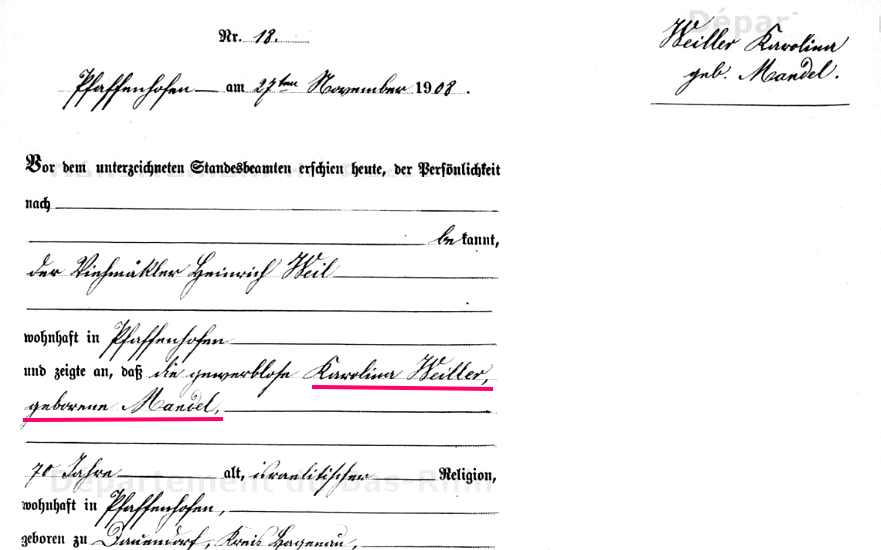 Nr. 18.
Weiller Karolina
geb. Mandel.
Pfaffenhofen am 27ten November 1908.
Vor dem unterzeichneten Standesbeamten erschien heute, der Persönlichkeit
nach
bekannt,
der Viehmäkler Heinrich Weil
wohnhaft in Pfaffenhofen
und zeigte an, daß die gewerblose Karolina Weiller,
geborene Mandel,
70 Jahre alt, israelitischer Religion,
wohnhaft in Pfaffenhofen,
geboren zu Dauendorf, Kreis Hagenau,
Département du Bas-Rhin